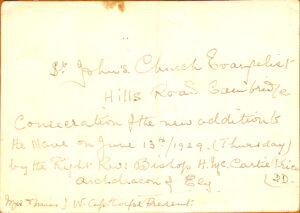 St John's Church Evangelist
Hills Road Cambridge
Consecration of the new addition to
the Nave on June 13th/1929. (Thursday)
by the Right Rev: Bishop H. Mc. Cartie Price
archdeacon of Ely. (DD.
Mrs J. W. present.